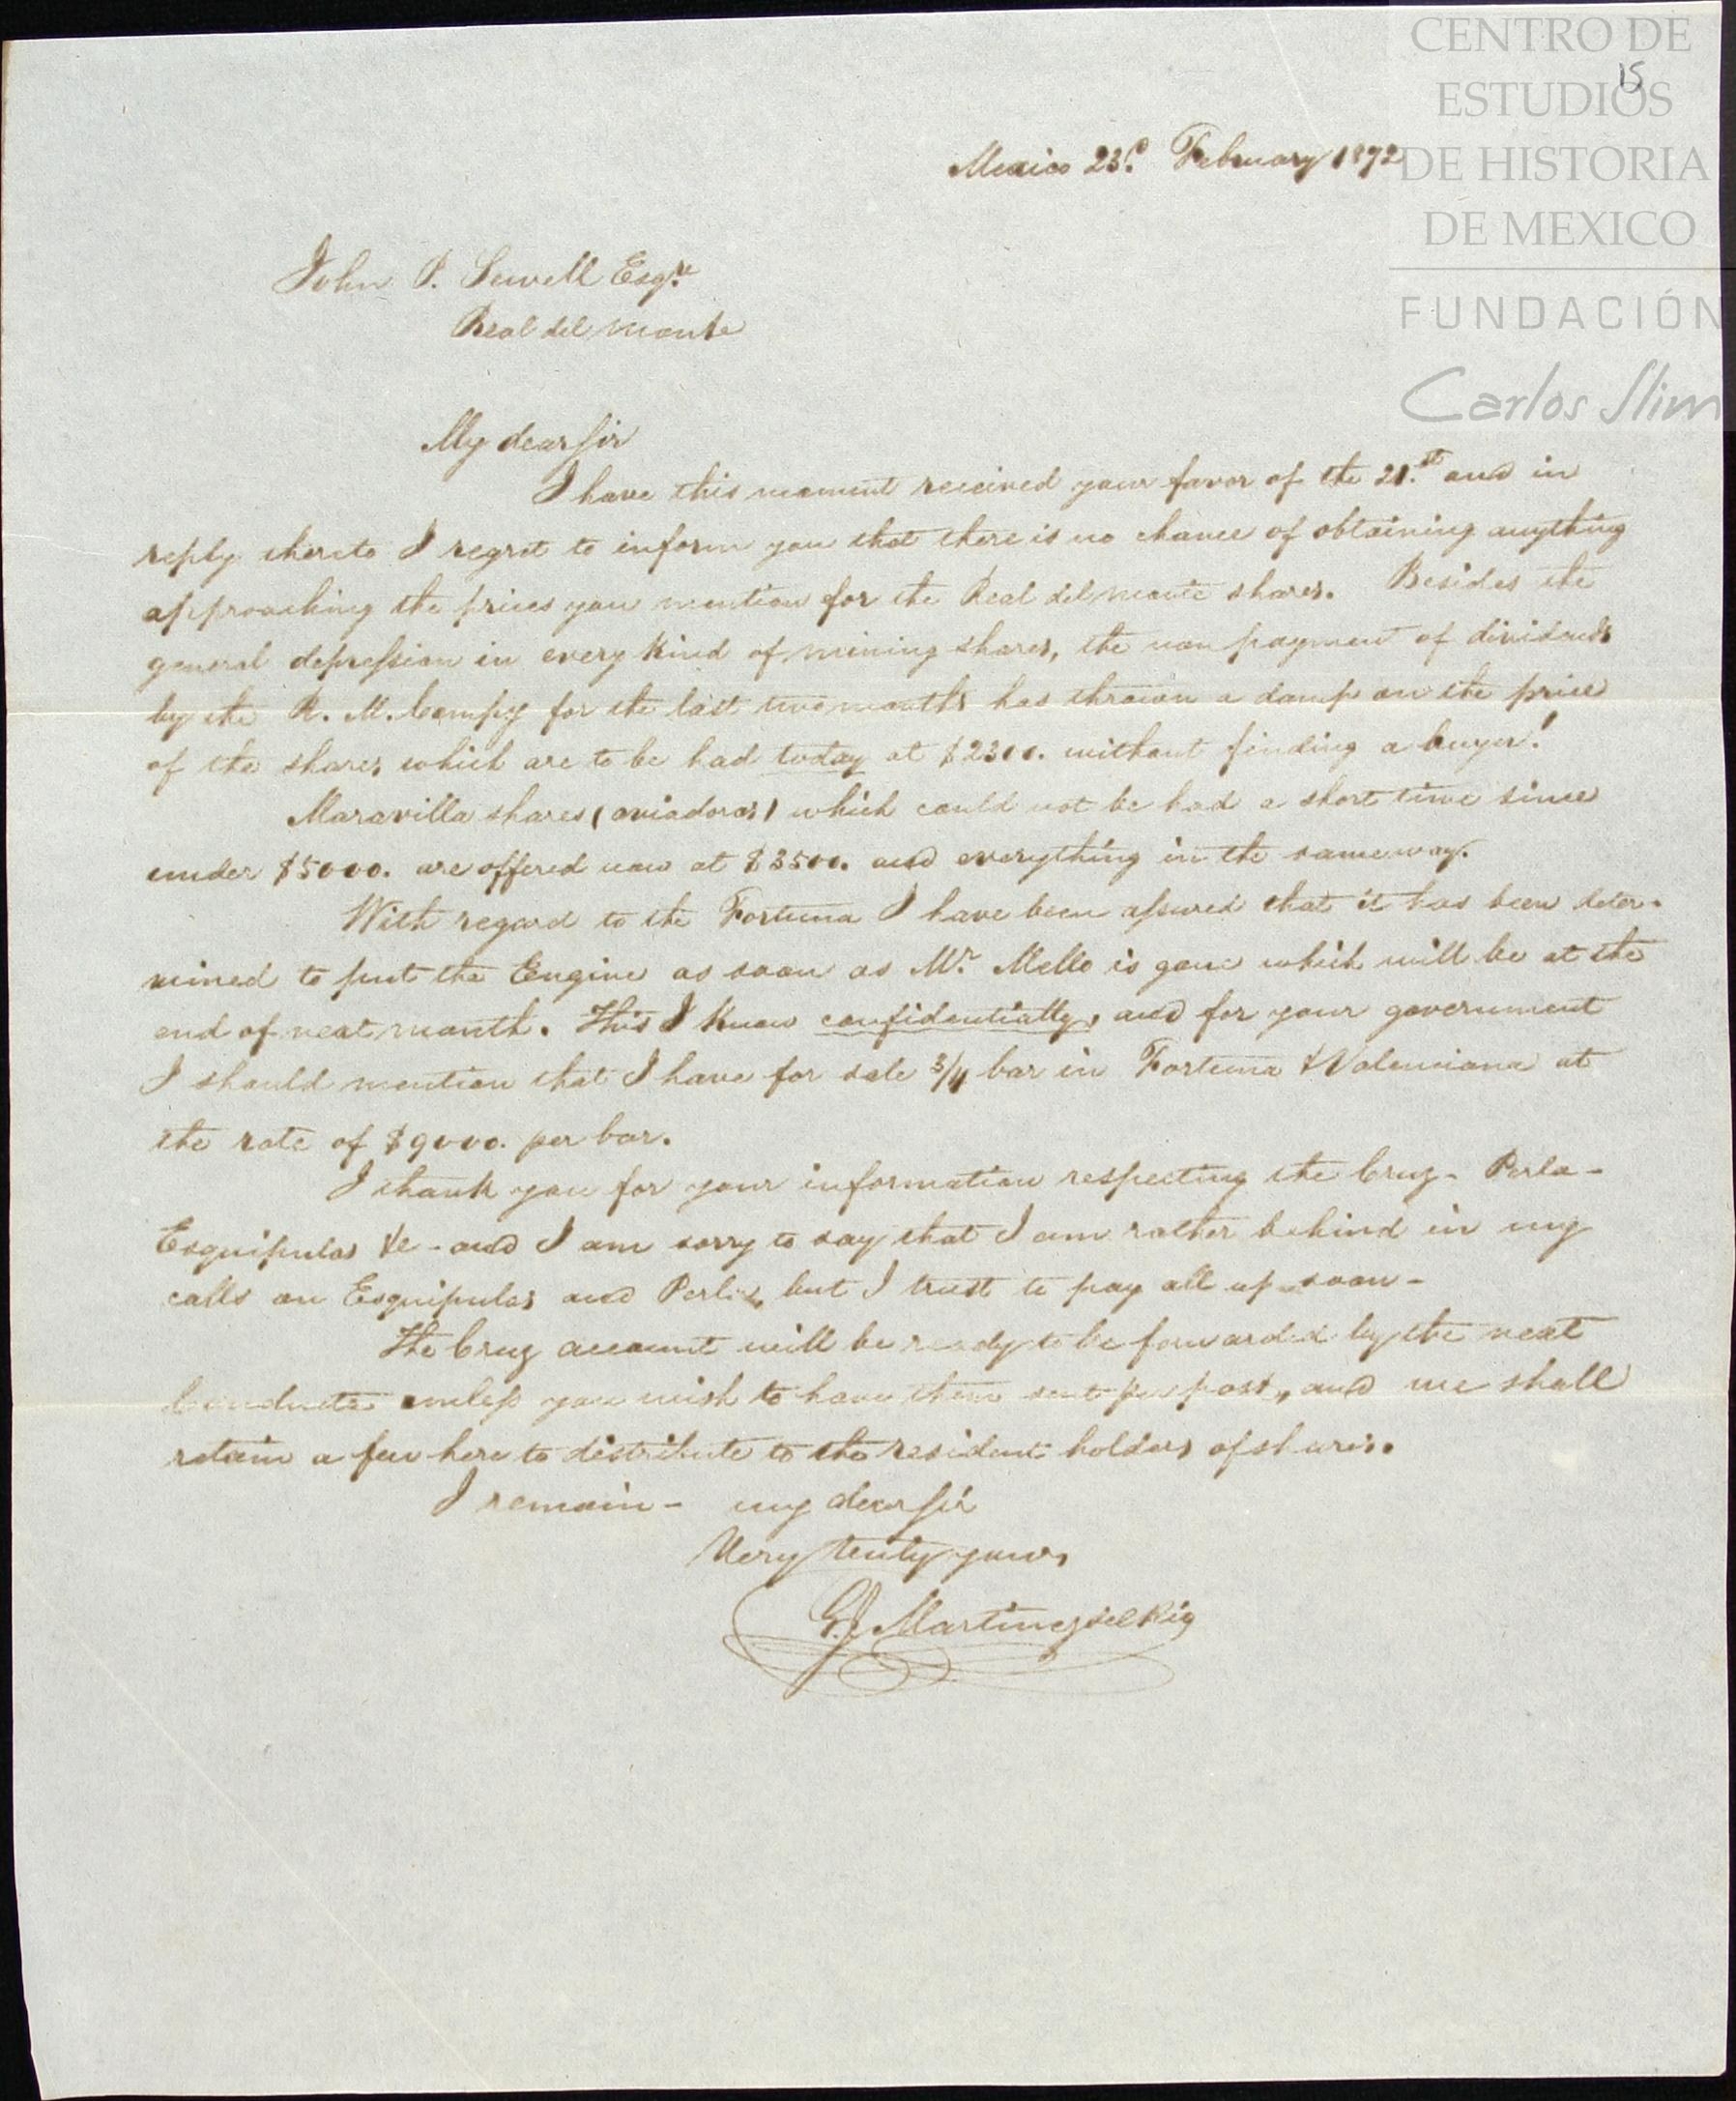 CENTRO DE
ESTUDIOS
DE HISTORIA
DE MEXICO
FUNDACIÓN
Carlos Slim
15
Mexico 23d February 1872
John P. Sewell Esqre
Real del Monte
My dear Sir
I have this moment received your favor of the 21st and in
reply thereto I regret to inform you that there is no chance of obtaining anything
approaching the prices you mention for the Real del Monte shares. Besides the
general depression in every kind of mining shares, the non payment of dividends
by the R. M. Compy for the last two months has thrown a damp on the price
of the shares which are to be had today at $2300. without finding a buyer!
Maravilla shares (aviadoras) which could not be had a short time since
under $5000. are offered now at $3500. and everything in the same way.
With regard to the Fortuna I have been assured that it has been deter-
mined to put the Engine as soon as Mr. Mello is gone which will be at the
end of next month. This I know confidentially, and for your government
I should mention that I have for sale 3/4 bar in Fortuna & Valenciana at
the rate of $9000. per bar.
I thank you for your information respecting the Cruz - Perla -
Esquipulas &c - and I am sorry to say that I am rather behind in my
calls on Esquipulas and Perla, but I trust to pay all up soon -
The Cruz account will be ready to be forwarded by the next
Conducta unless you wish to have them sent per post, and we shall
retain a few here to distribute to the resident holders of shares.
I remain - my dear Sir
Very truly yours
G. J. Martinez del Rio